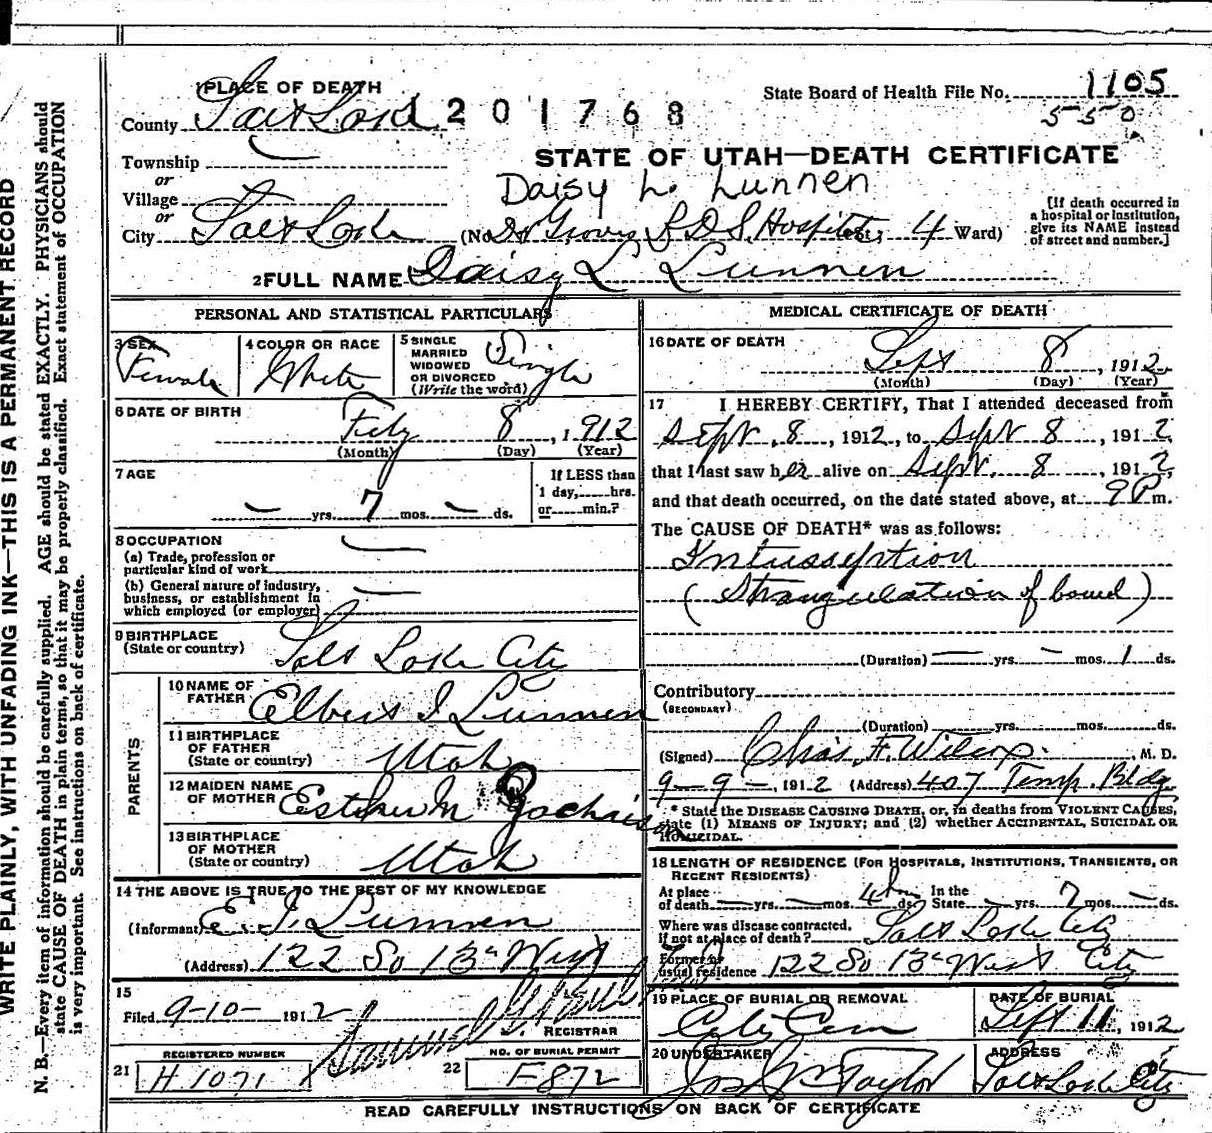 1 PLACE OF DEATH
County Salt Lake
201768
State Board of Health File No. 1105
550
STATE OF UTAH—DEATH CERTIFICATE
Township
or
Village
or
City Salt Lake
Daisy L. Lunnen
(No. Dr Groves L D S Hospital St.; 4 Ward)
[If death occurred in
a hospital or institution,
give its NAME instead
of street and number.]
2 FULL NAME Daisy L Lunnen
PERSONAL AND STATISTICAL PARTICULARS
3 SEX
Female
4 COLOR OR RACE
White
5 SINGLE
MARRIED
WIDOWED
OR DIVORCED
(Write the word)
Single
6 DATE OF BIRTH
Feby 8, 1912
(Month) (Day) (Year)
7 AGE
— yrs. 7 mos. — ds.
If LESS than
1 day,......hrs.
or......min.?
8 OCCUPATION
(a) Trade, profession or
particular kind of work
(b) General nature of industry,
business, or establishment in
which employed (or employer)
9 BIRTHPLACE
(State or country)
Salt Lake City
PARENTS
10 NAME OF
FATHER
Elbert I Lunnen
11 BIRTHPLACE
OF FATHER
(State or country)
Utah
12 MAIDEN NAME
OF MOTHER
Esther M Zachrison
13 BIRTHPLACE
OF MOTHER
(State or country)
Utah
14 THE ABOVE IS TRUE TO THE BEST OF MY KNOWLEDGE
(Informant) E. I. Lunnen
(Address) 122 So 13th West
15
Filed 9-10- 1912
REGISTRAR
REGISTERED NUMBER
21 H 1071
NO. OF BURIAL PERMIT
22 F872
MEDICAL CERTIFICATE OF DEATH
16 DATE OF DEATH
Sept 8, 1912
(Month) (Day) (Year)
17 I HEREBY CERTIFY, That I attended deceased from
Sept. 8, 1912, to Sept 8, 1912,
that I last saw her alive on Sept. 8, 1912,
and that death occurred, on the date stated above, at 9 P m.
The CAUSE OF DEATH* was as follows:
Intusseption
(Strangulation of bowel)
(Duration) — yrs. — mos. 1 ds.
Contributory
(SECONDARY)
(Duration) yrs. mos. ds.
(Signed) Chas. F. Wilcox. M. D.
9-9-, 1912 (Address) 407 Temp. Bldg.
* State the DISEASE CAUSING DEATH, or, in deaths from VIOLENT CAUSES,
state (1) MEANS OF INJURY; and (2) whether ACCIDENTAL, SUICIDAL OR
HOMICIDAL.
18 LENGTH OF RESIDENCE (FOR HOSPITALS, INSTITUTIONS, TRANSIENTS, OR
RECENT RESIDENTS)
At place
of death — yrs. — mos. 4 hrs ds. In the
State — yrs. 7 mos. — ds.
Where was disease contracted,
If not at place of death? Salt Lake City
Former or
usual residence 122 So 13th West City
19 PLACE OF BURIAL OR REMOVAL
City Cem
DATE OF BURIAL
Sept 11, 1912
20 UNDERTAKER
Jos Wm Taylor
ADDRESS
Salt Lake City
READ CAREFULLY INSTRUCTIONS ON BACK OF CERTIFICATE
WRITE PLAINLY, WITH UNFADING INK—THIS IS A PERMANENT RECORD
N. B.—Every item of information should be carefully supplied. AGE should be stated EXACTLY. PHYSICIANS should
state CAUSE OF DEATH in plain terms, so that it may be properly classified. Exact statement of OCCUPATION
is very important. See instructions on back of certificate.